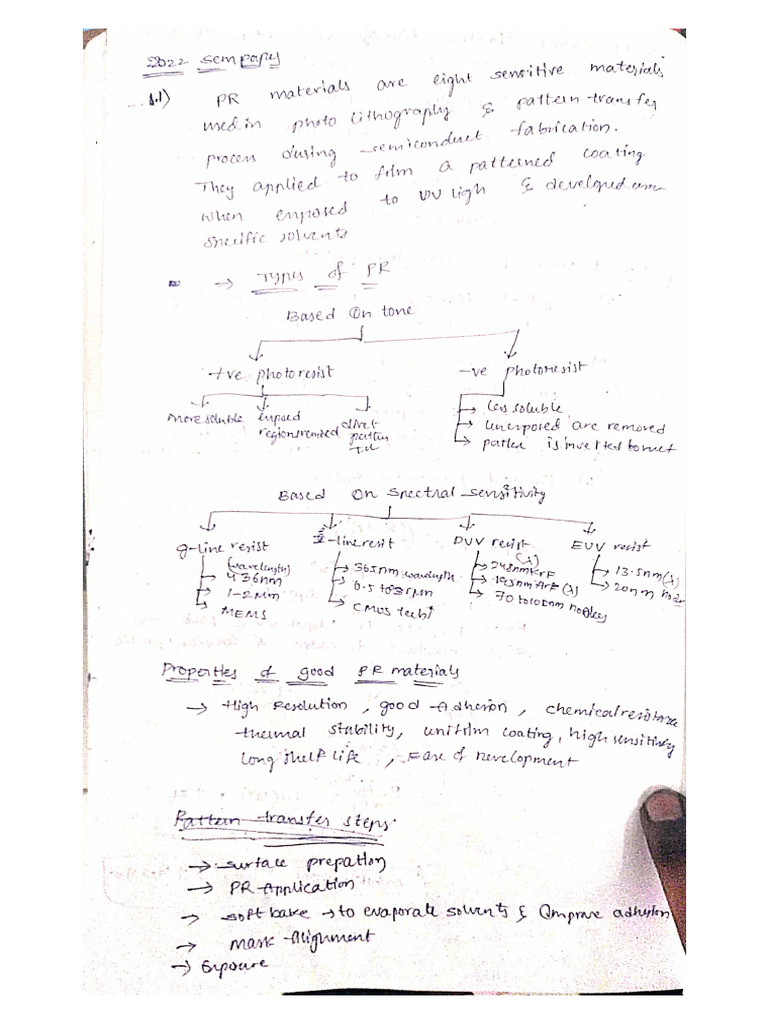 2022 sem papers
1.1) PR materials are eight sensitive materials
used in photo lithography & pattern transfer
process during semiconduct fabrication.
They applied to film a patterned coating
when exposed to UV ligh & developed
specific solvents
→ Types of PR
Based On tone
+ve photoresist
-ve photoresist
more soluble
exposed
regions
pattern
less soluble
unexposed are removed
is inverted
Based On spectral sensitivity
g-line resist
(wavelength)
436nm
MEMS
i-line resit
365nm wavelength
CMOS
DUV resist
(λ)
248nm KrF
193nm ArF (λ)
EUV resist
13.5nm (λ)
20nm node
Properties of good PR materials
→ High Resolution, good Adhesion, chemical resistance
thermal stability, unifrim coating, high sensitivity
long shelf life, Ease of Development
Pattern transfer steps.
→ surface prepation
→ PR Application
→ soft bake → to evaporate solvents & Improve adhesion
→ mask Alignment
→ Exposure